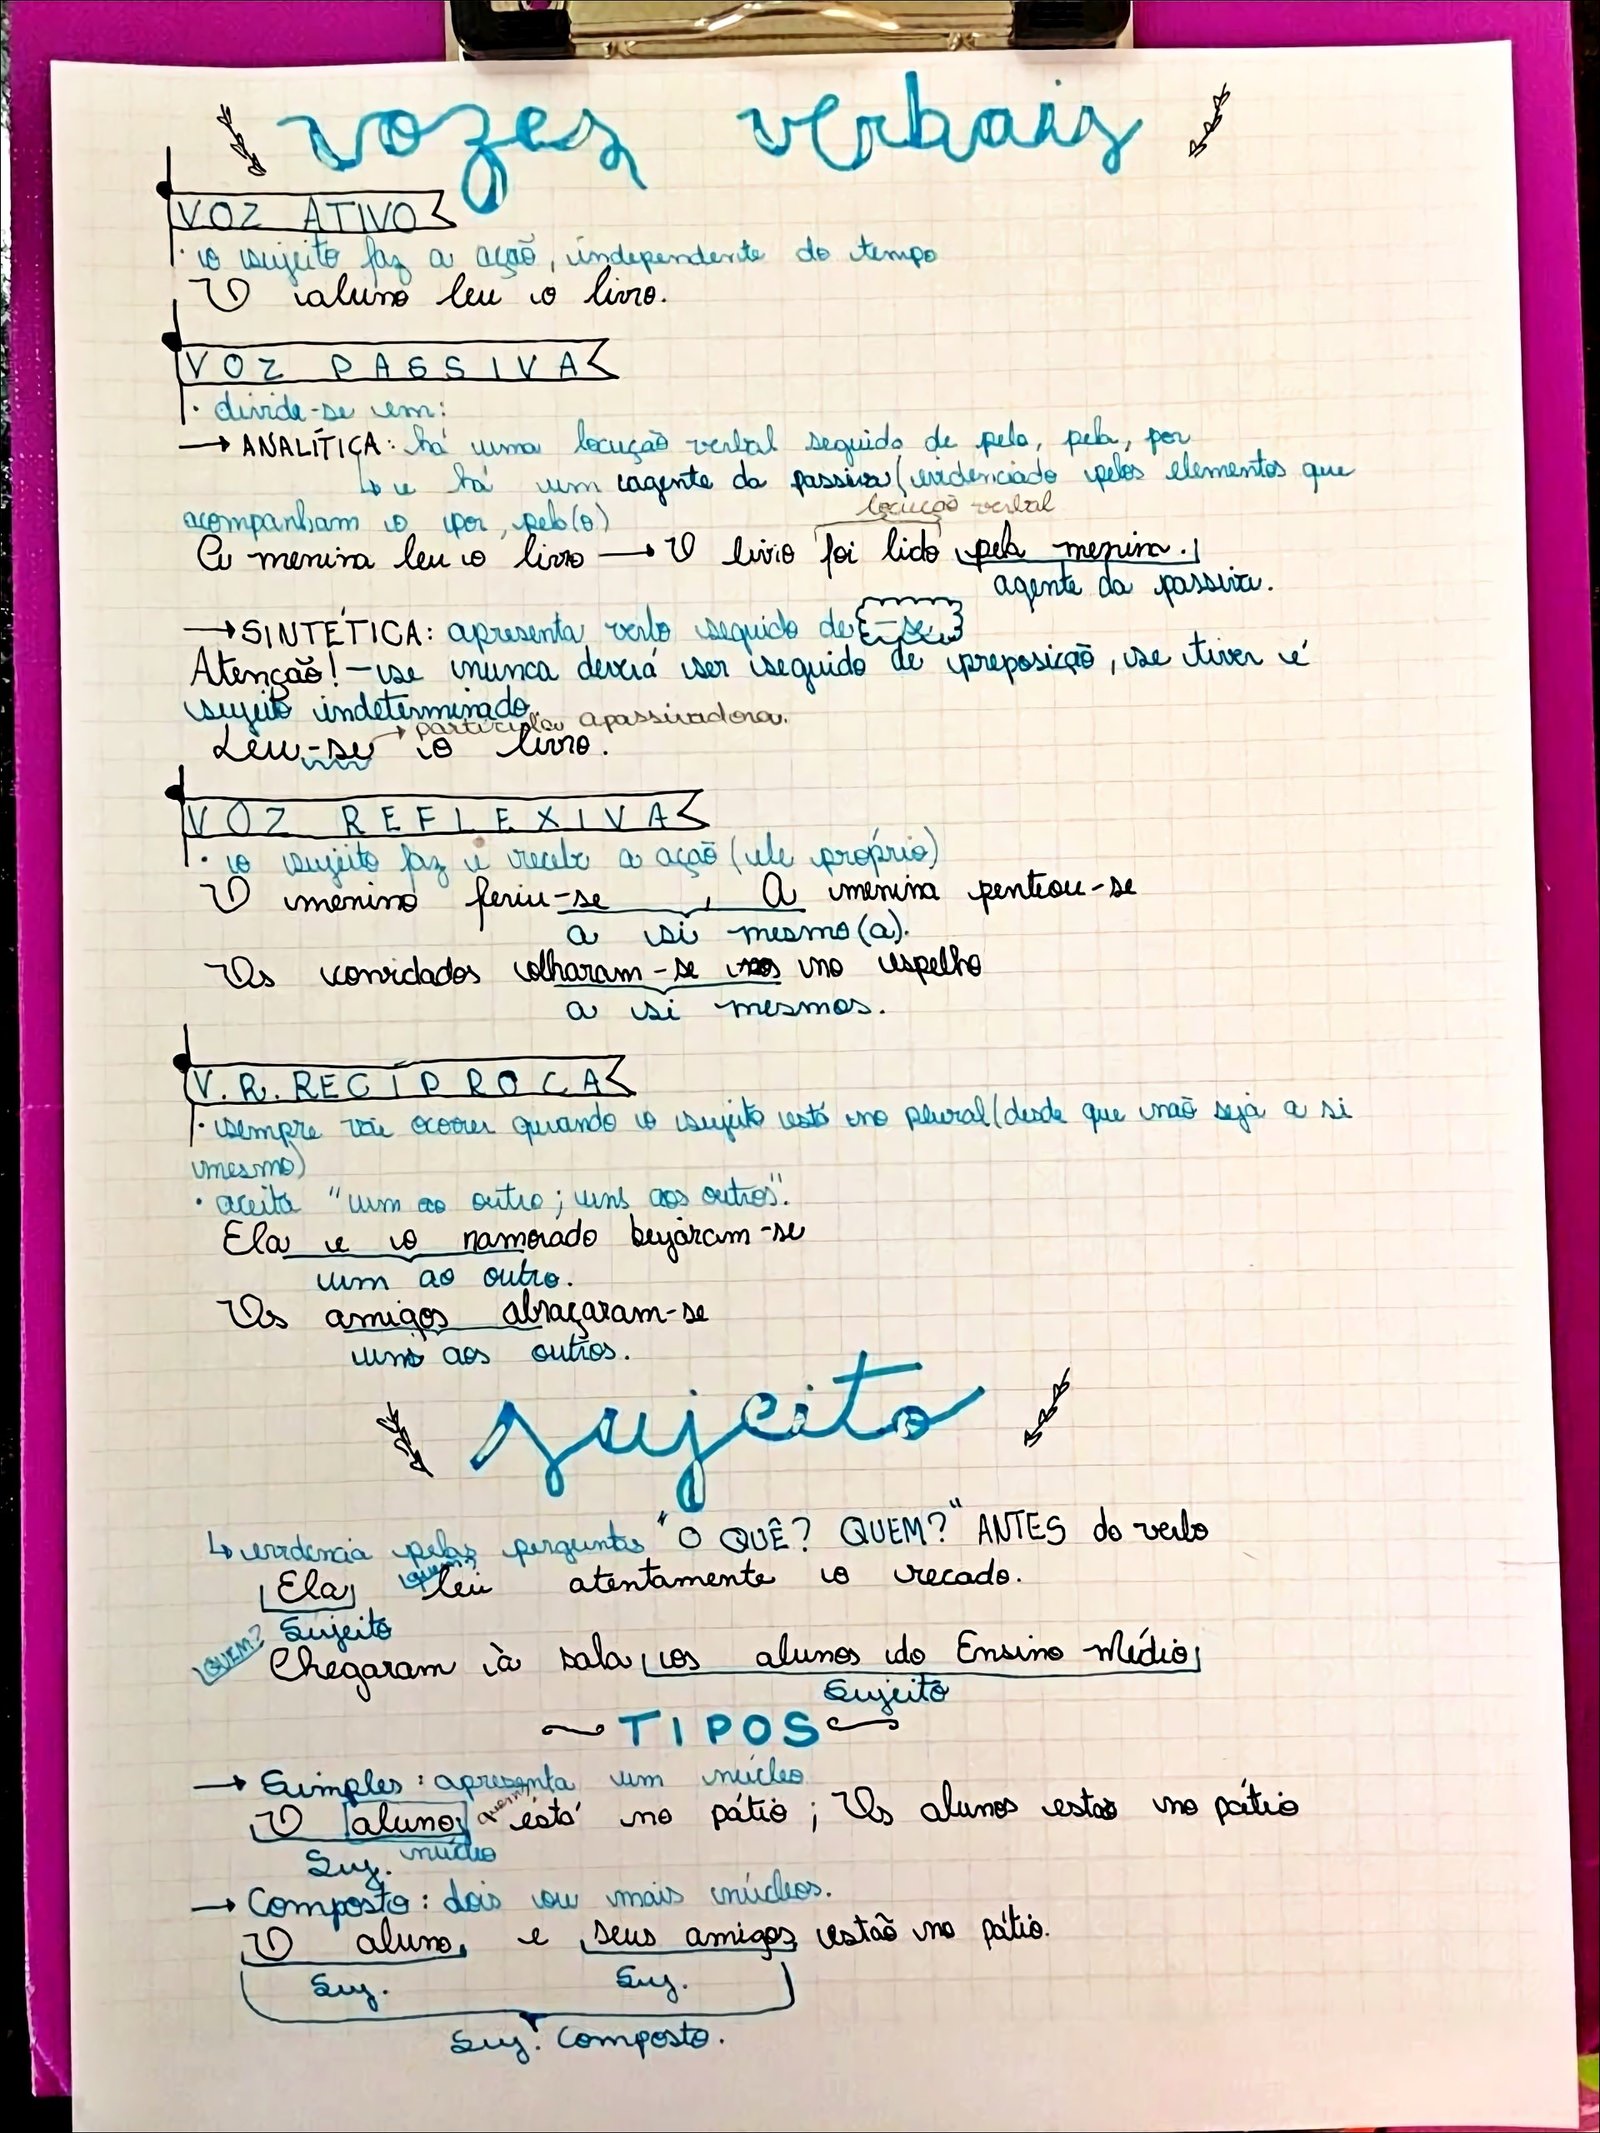 vozes verbais
VOZ ATIVO
· o sujeito faz a ação, independente do tempo
O aluno leu o livro.
VOZ PASSIVA
· divide-se em:
→ ANALÍTICA: há uma locução verbal seguido de pelo, pela, por
↳ e há um agente da passiva (evidenciado pelos elementos que
acompanham o por, pelo(a)
locução verbal
A menina leu o livro → O livro foi lido pela menina.
agente da passiva.
→ SINTÉTICA: apresenta verbo seguido de -se
Atenção! -se nunca deverá ser seguido de preposição, se tiver é
sujeito indeterminado.
→ partícula apassivadora.
Leu-se o livro.
VOZ REFLEXIVA
· o sujeito faz e recebe a ação (ele próprio)
O menino feriu-se, A menina penteou-se
a si mesmo(a).
Os convidados olharam-se no espelho
a si mesmos.
V.R. RECÍPROCA
· sempre vai ocorrer quando o sujeito está no plural (desde que não seja a si
mesmo)
· aceita "um ao outro; uns aos outros".
Ela e o namorado beijaram-se
um ao outro.
Os amigos abraçaram-se
uns aos outros.
sujeito
↳ evidencia pelas perguntas "O QUÊ? QUEM?" ANTES do verbo
quem?
Ela leu atentamente o recado.
Sujeito
QUEM?
Chegaram à sala os alunos do Ensino Médio
Sujeito
TIPOS
→ Simples: apresenta um núcleo
quem?
O aluno está no pátio; Os alunos estão no pátio
Suj. núcleo
→ Composto: dois ou mais núcleos.
O aluno e seus amigos estão no pátio.
Suj. Suj.
Suj. Composto.